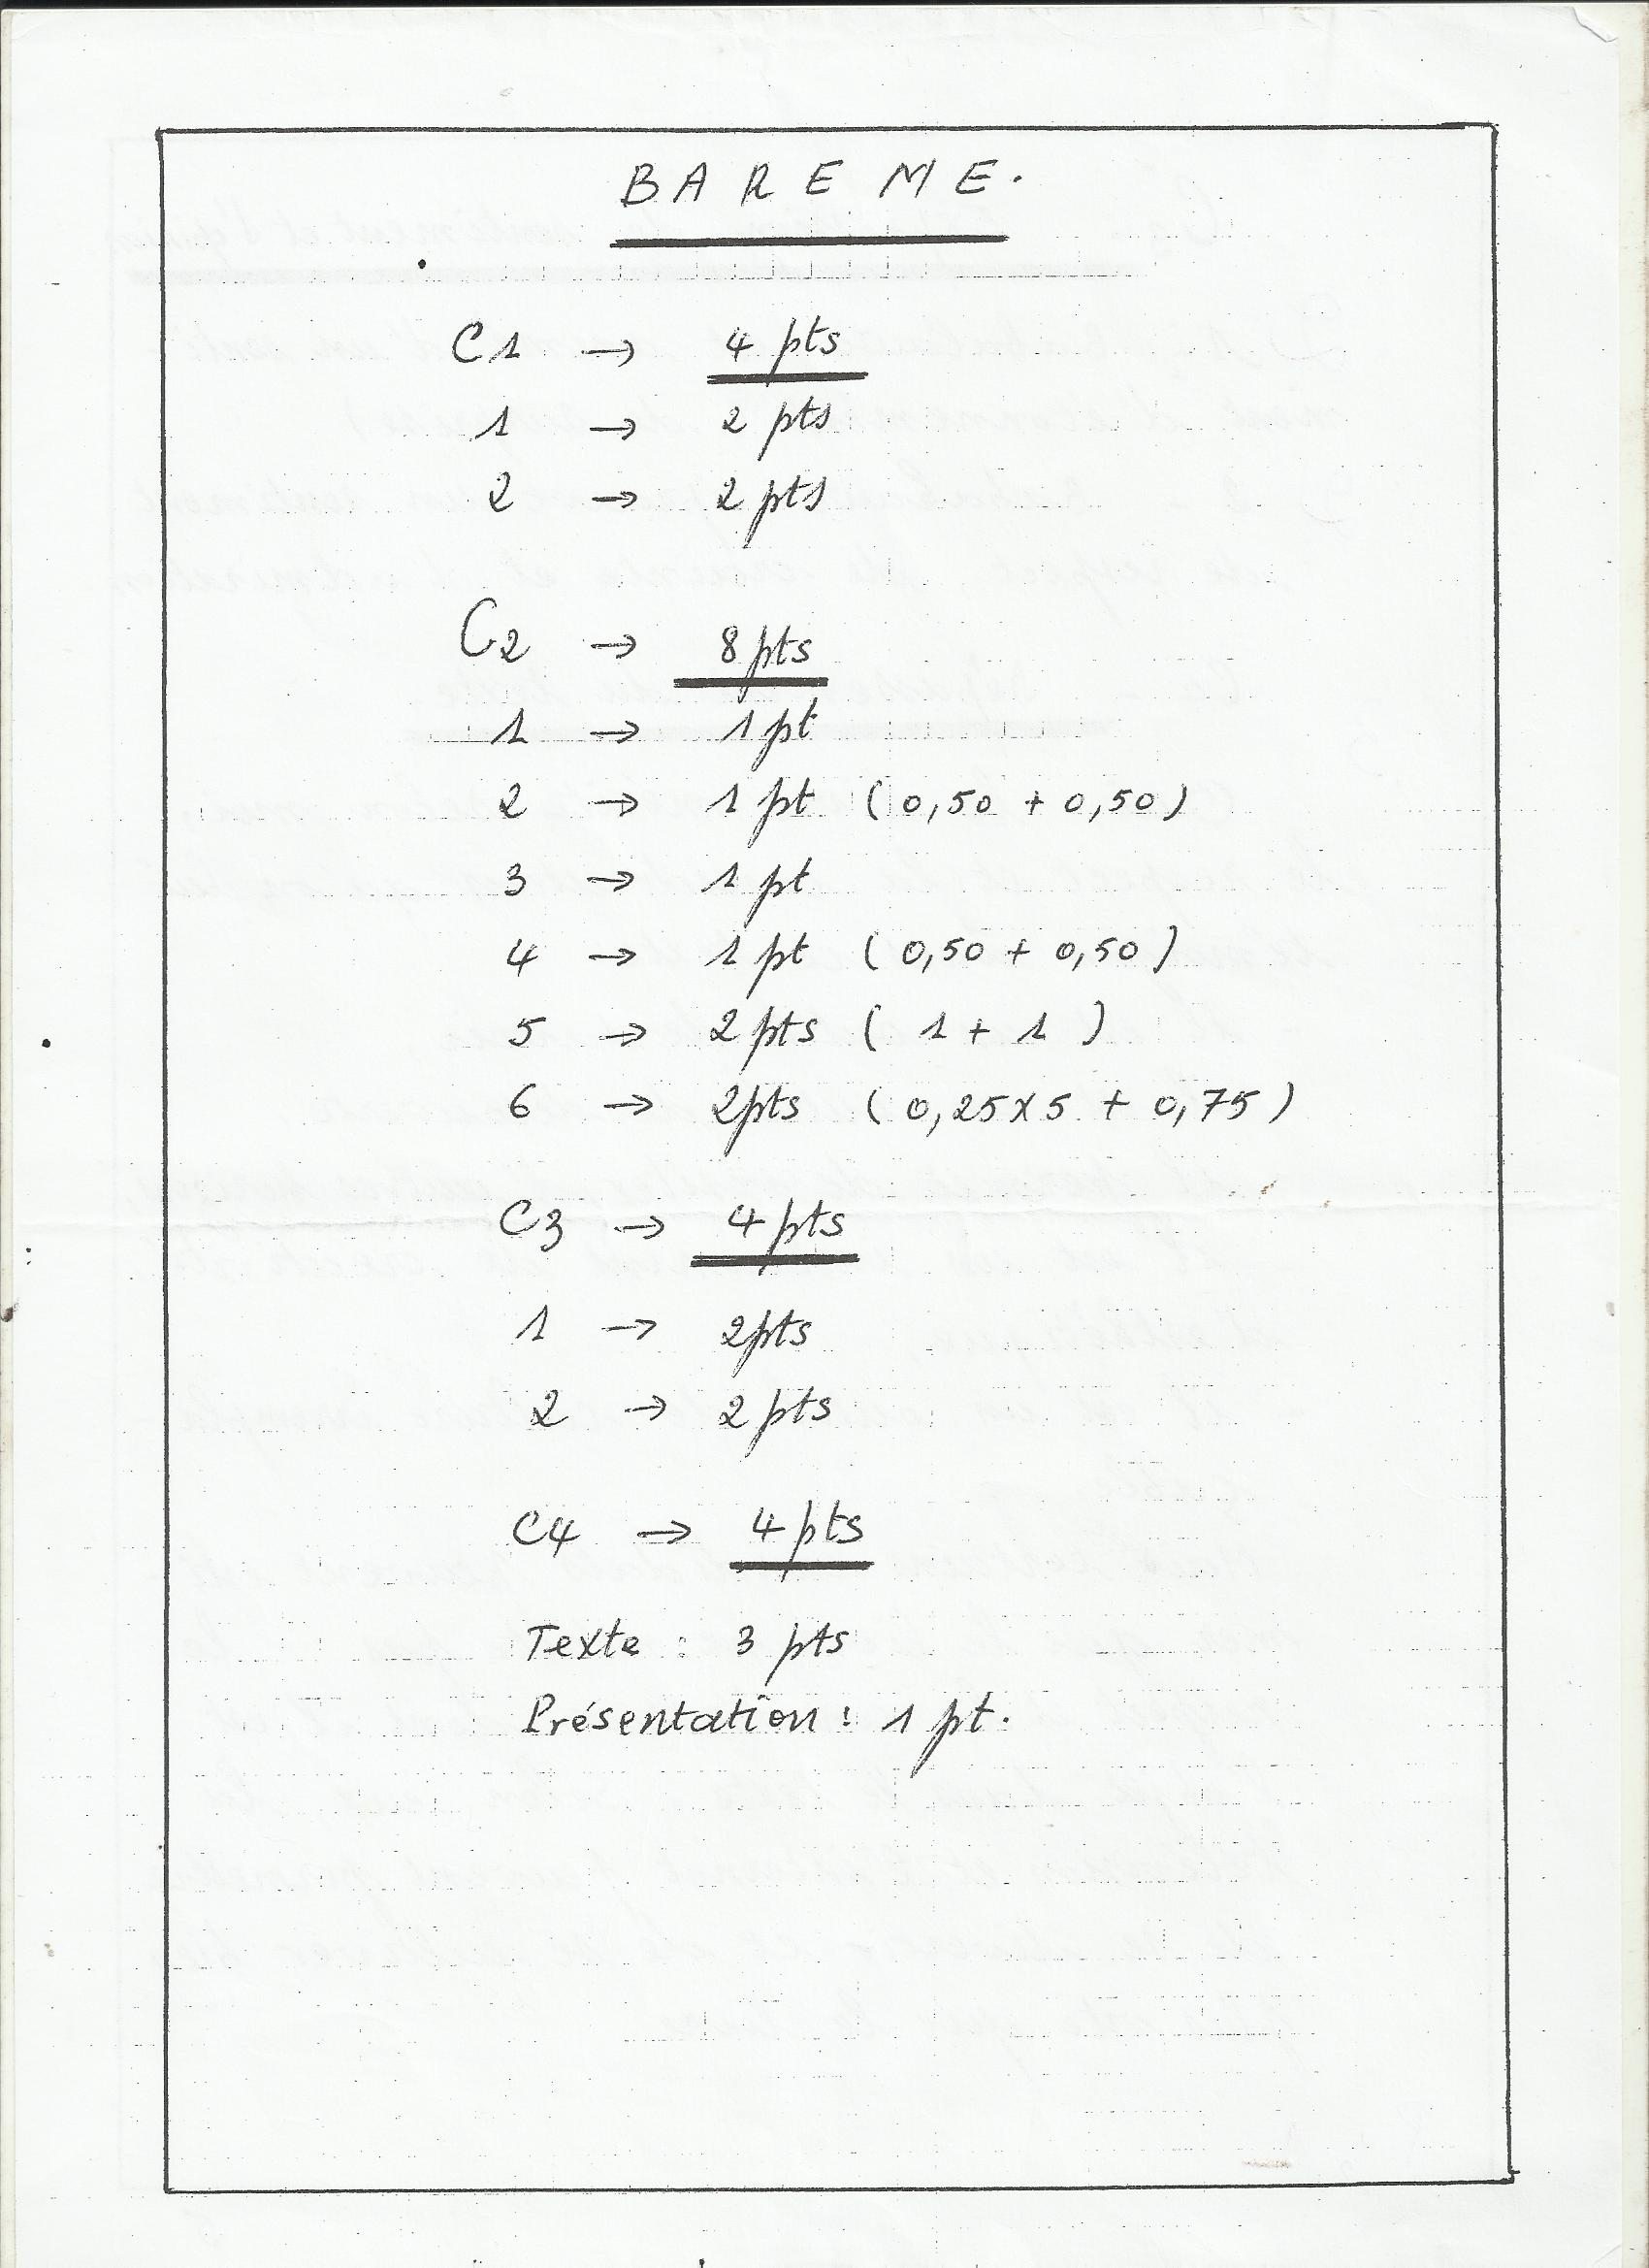 BAREME.
C1 → 4 pts
1 → 2 pts
2 → 2 pts
C2 → 8 pts
1 → 1 pt
2 → 1 pt (0,50 + 0,50)
3 → 1 pt
4 → 1 pt (0,50 + 0,50)
5 → 2 pts (1 + 1)
6 → 2pts (0,25x5 + 0,75)
C3 → 4 pts
1 → 2pts
2 → 2 pts
C4 → 4 pts
Texte : 3 pts
Présentation : 1 pt.